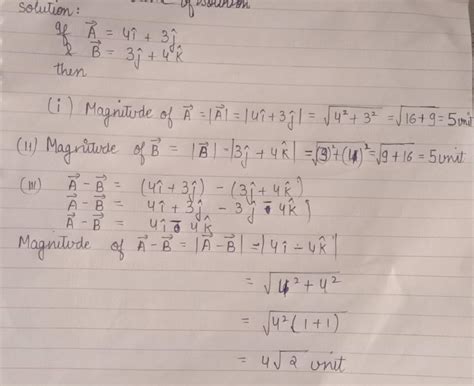 solution:
If A⃗ = 4î + 3ĵ
& B⃗ = 3ĵ + 4k̂
then
(i) Magnitude of A⃗ = |A⃗| = |4î + 3ĵ| = √4² + 3² = √16 + 9 = 5 unit
(II) Magnitude of B⃗ = |B⃗| - |3ĵ + 4k̂| = √(3)² + (4)² = √9 + 16 = 5 unit
(III) A⃗ - B⃗ = (4î + 3ĵ) - (3ĵ + 4k̂)
A⃗ - B⃗ = 4î + 3ĵ - 3ĵ - 4k̂
A⃗ - B⃗ = 4î - 4k̂
Magnitude of A⃗ - B⃗ = |A⃗ - B⃗| = |4î - 4k̂|
= √4² + 4²
= √4² (1 + 1)
= 4√2 unit